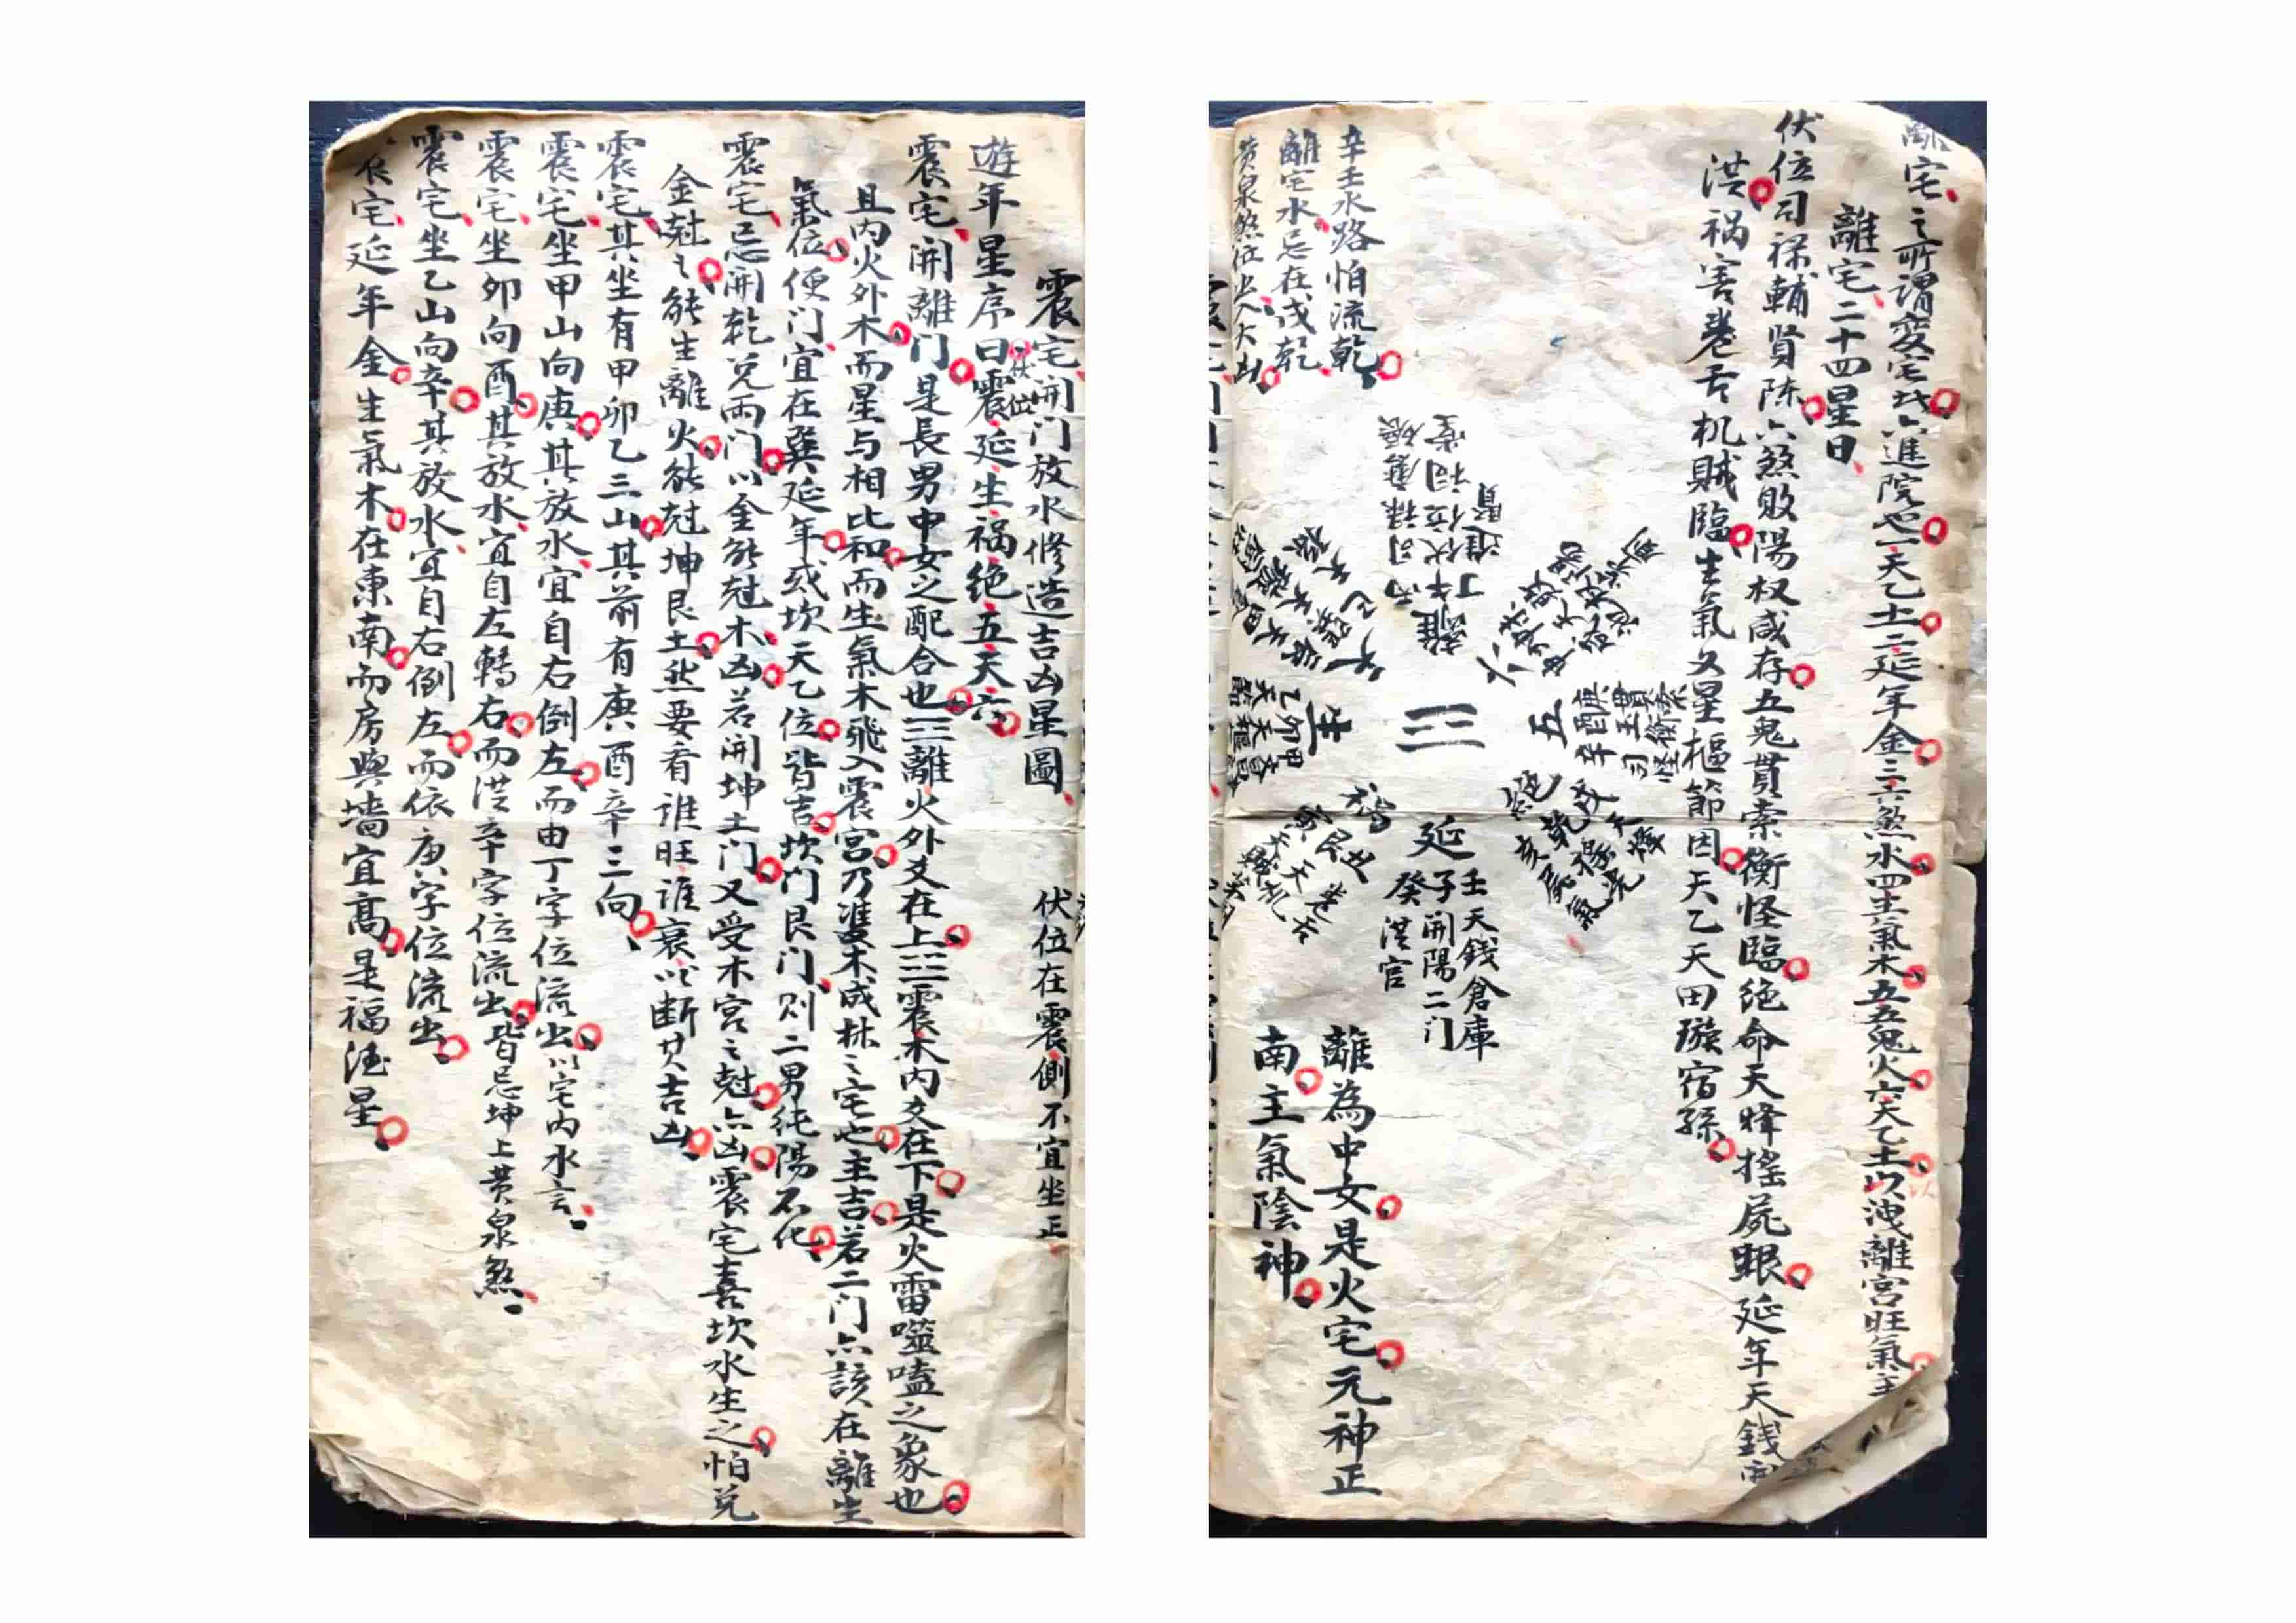 離宅之所謂變宅六進院也一天乙土二延年金三六煞水四生氣木五五鬼火六天乙土以洩離宮旺氣主
離宅二十四星曰
伏位司祿輔賢陈六煞敗陽权咸存五鬼貫索衡怪臨絕命天瘟搖屍眼延年天錢
洪祸害卷舌机賊臨生氣文星樞節因天乙天田璇宿孫
離
丙午丁
伏位
六
五
庚酉辛
絕
乾
亥
延
壬子癸
天錢倉庫
開陽二门
洪官
祸
丑艮寅
卷舌
天机
天賊
生
甲卯乙
天
離為中女是火宅元神正
南主氣陰神
辛壬水路怕流乾
離宅水忌在戌乾
黄泉煞位出人大凶
震宅開门放水修造吉凶星圖
伏位在震側不宜坐正
遊年星序曰震延生祸绝五天六
伏位
震宅開離门是長男中女之配合也☲離火外爻在上☳震木内爻在下是火雷噬嗑之象也
且内火外木而星与相比和而生氣木飛入震宮乃雙木成林之宅也主吉若二门六該在離生
氣位便门宜在巽延年或坎天乙位皆吉坎门艮门则二男純陽不化
震宅忌開乾兑兩门以金能尅木凶若開坤土门又受木宮之尅六凶震宅喜坎水生之怕兑
金尅之能生離火能尅坤艮土然要看谁旺谁衰以断其吉凶
震宅其坐有甲卯乙三山其前有庚酉辛三向
震宅坐甲山向庚其放水宜自右倒左而由丁字位流出以宅内水言
震宅坐卯向酉其放水宜自左轉右而洪辛字位流出皆忌坤上黄泉煞
震宅坐乙山向辛其放水宜自右倒左而依庚字位流出
宅延年金生氣木在東南而房與墙宜高是福德星